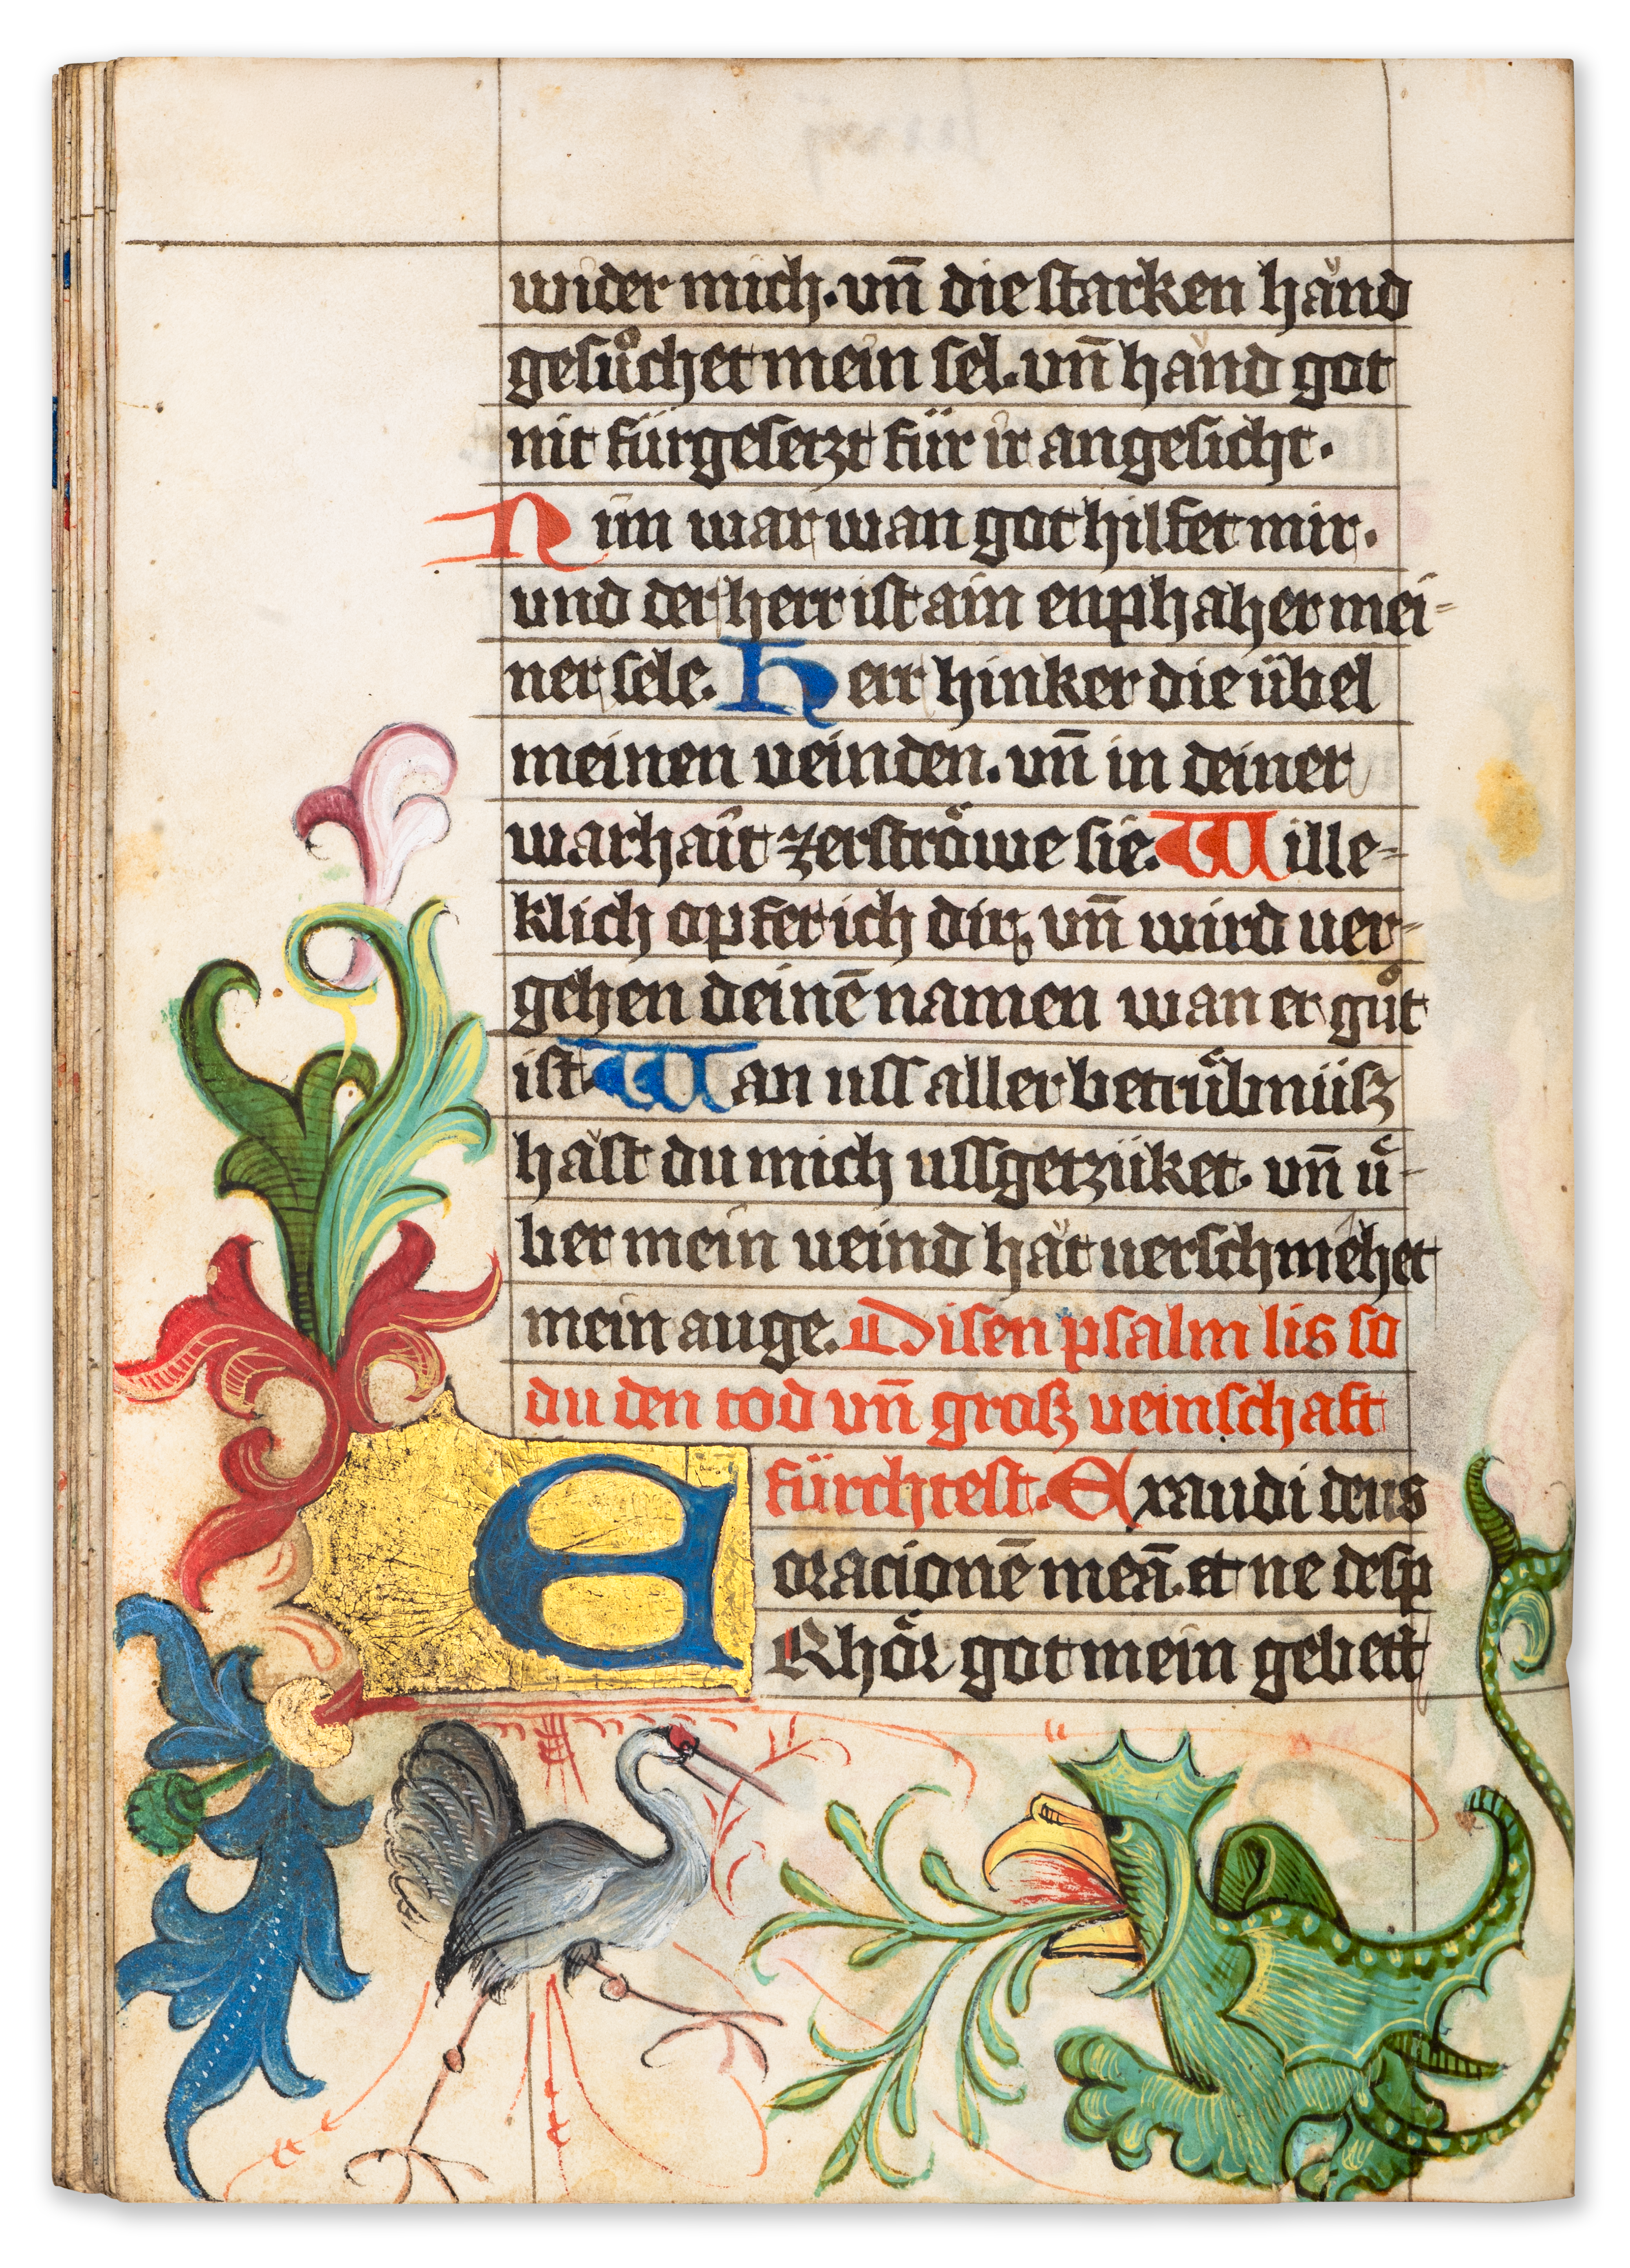 wider mich. vn̄ die starken händ
gesůchet mein sel. vn̄ händ got
nit fürgesetzt für ir angesicht.
Nim war wan got hilfet mir.
und der herr ist ain enphaher mei-
ner sele. Herr hinker die übel
meinen veinden. vn̄ in deiner
warhait zerströwe sie. Wille-
klich opfer ich dir, vn̄ wird ver-
gehen deinē namen wan er gůt
ist Wan uss aller betrübnüsz
hast du mich ussgetzüket. vn̄ ü-
ber mein veind hät verschmehet
mein auge. Disen psalm lis so
du den tod vn̄ grosz veinschaft
fürchtest. Exaudi deus
oracionē meā. et ne desp
ERhör got mein gebett